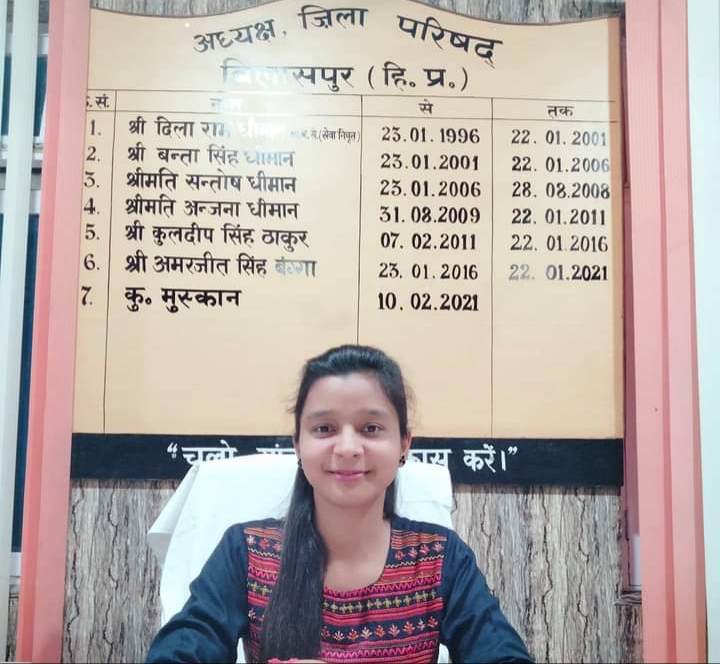 अध्यक्ष, ज़िला परिषद्
बिलासपुर (हि. प्र.)
से तक
1. श्री दिला राम धीमान (सेवा निवृत) 23.01.1996 22.01.2001
2. श्री बन्ता सिंह धीमान 23.01.2001 22.01.2006
3. श्रीमति सन्तोष धीमान 23.01.2006 28.08.2008
4. श्रीमति अन्जना धीमान 31.08.2009 22.01.2011
5. श्री कुलदीप सिंह ठाकुर 07.02.2011 22.01.2016
6. श्री अमरजीत सिंह बंग्गा 23.01.2016 22.01.2021
7. कु० मुस्कान 10.02.2021
“चलो करें।”